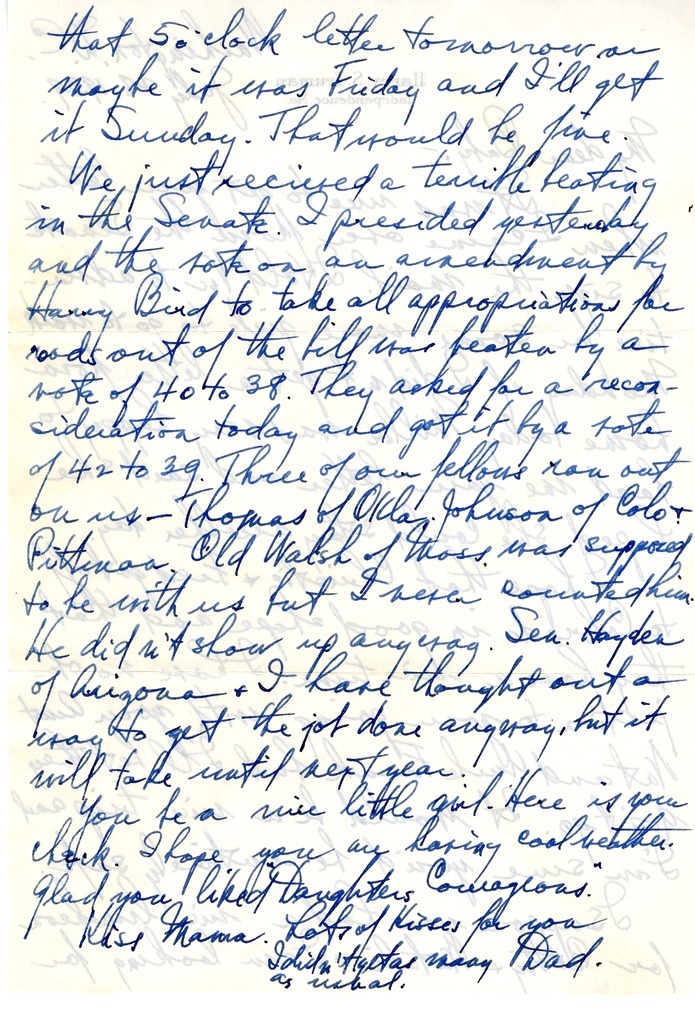 that 5 o'clock letter tomorrow or
maybe it was Friday and I'll get
it Sunday. That would be fine.
We just recieved a terrible beating
in the Senate. I presided yesterday
and the vote on an amendment by
Harry Bird to take all appropriations for
roads out of the bill was beaten by a
vote of 40 to 38. They asked for a recon-
sideration today and got it by a vote
of 42 to 39. Three of our fellows ran out
on us — Thomas of Okla, Johnson of Colo +
Pittman. Old Walsh of Mass. was supposed
to be with us but I never counted him.
He didn't show up anyway. Sen. Hayden
of Arizona + I have thought out a
way to get the job done anyway, but it
will take until next year.
You be a nice little girl. Here is your
check. I hope you are having cool weather.
Glad you liked "Daughters Courageous."
Kiss Mama. Lots of Kisses for you
Dad.
I didn't get as many
as usual.